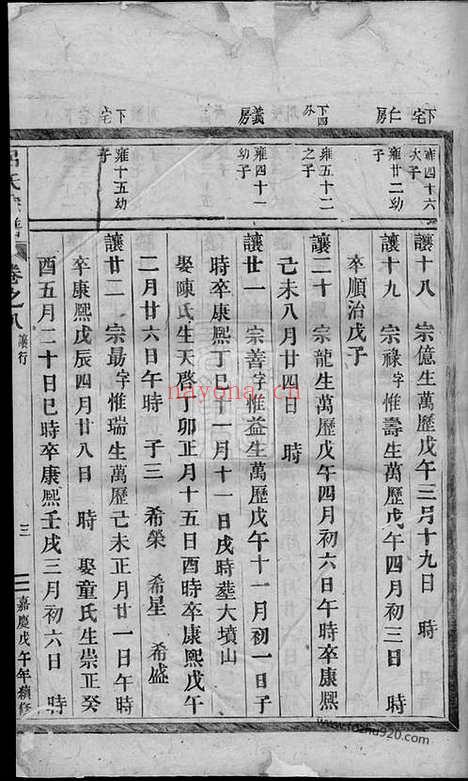 下宅仁房
下四外
義房
下宅
雍四十六
次子
雍廿二幼
子
雍五十二
之子
雍四十一
幼子
雍十五幼
子
讓十八 宗億生萬歷戊午三月十九日 時
讓十九 宗祿字惟壽生萬歷戊午四月初三日 時
卒順治戊子
讓二十 宗龍生萬歷戊午四月初六日午時卒康熙
己未八月廿四日 時
讓廿一 宗善字惟益生萬歷戊午十一月初一日子
時卒康熙丁巳十一月十一日戌時葬大墳山
娶陳氏生天啓丁卯正月十五日酉時卒康熙戊午
二月廿六日午時 子三 希榮 希星 希盛
讓廿二 宗勗字惟瑞生萬歷己未正月廿一日午時
卒康熙戊辰四月廿八日 時 娶童氏生崇正癸
酉五月二十日巳時卒康熙壬戌三月初六日 時
呂氏宗譜 卷之八 讓行 三 嘉慶戊午年續修
nayona.cn
www.fozhu920.com